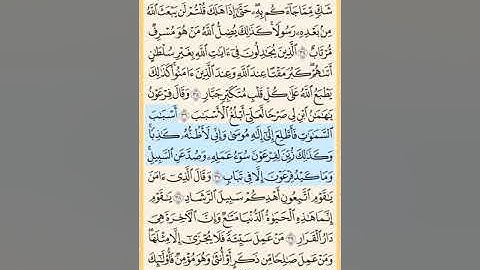 شَكٍّ مِّمَّا جَآءَكُم بِهِۦ حَتَّىٰٓ إِذَا هَلَكَ قُلْتُمْ لَن يَبْعَثَ اَ۬للَّهُ
مِنۢ بَعْدِهِۦ رَسُولًا كَذَٰلِكَ يُضِلُّ اُ۬للَّهُ مَنْ هُوَ مُسْرِفٌ
مُّرْتَابٌ اِ۬لَّذِينَ يُجَٰدِلُونَ فِىٓ ءَايَٰتِ اِ۬للَّهِ بِغَيْرِ سُلْطَٰنٍ
أَتَىٰهُمْ كَبُرَ مَقْتًا عِندَ اَ۬للَّهِ وَعِندَ اَ۬لَّذِينَ ءَامَنُوا۟ كَذَٰلِكَ
يَطْبَعُ اُ۬للَّهُ عَلَىٰ كُلِّ قَلْبِ مُتَكَبِّرٍ جَبَّارٍ وَقَالَ فِرْعَوْنُ
يَٰهَٰمَٰنُ اُ۪بْنِ لِى صَرْحًا لَّعَلِّىَ أَبْلُغُ اُ۬لْأَسْبَٰبَ أَسْبَٰبَ
اَ۬لسَّمَٰوَٰتِ فَأَطَّلِعُ إِلَىٰٓ إِلَٰهِ مُوسَىٰ وَإِنِّى لَأَظُنُّهُۥ كَٰذِبًا
وَكَذَٰلِكَ زُيِّنَ لِفِرْعَوْنَ سُوٓءُ عَمَلِهِۦ وَصَدَّ عَنِ اِ۬لسَّبِيلِ
وَمَا كَيْدُ فِرْعَوْنَ إِلَّا فِى تَبَابٍ وَقَالَ اَ۬لَّذِىٓ ءَامَنَ
يَٰقَوْمِ اِ۪تَّبِعُونِ أَهْدِكُمْ سَبِيلَ اَ۬لرَّشَادِ يَٰقَوْمِ
إِنَّمَا هَٰذِهِ اِ۬لْحَيَوٰةُ اُ۬لدُّنْيَا مَتَٰعٌ وَإِنَّ اَ۬لْأَخِرَةَ هِىَ
دَارُ اُ۬لْقَرَارِ مَنْ عَمِلَ سَيِّئَةً فَلَا يُجْزَىٰٓ إِلَّا مِثْلَهَا
وَمَنْ عَمِلَ صَٰلِحًا مِّن ذَكَرٍ أَوْ أُنثَىٰ وَهُوَ مُؤْمِنٌ فَأُو۟لَٰٓئِكَ